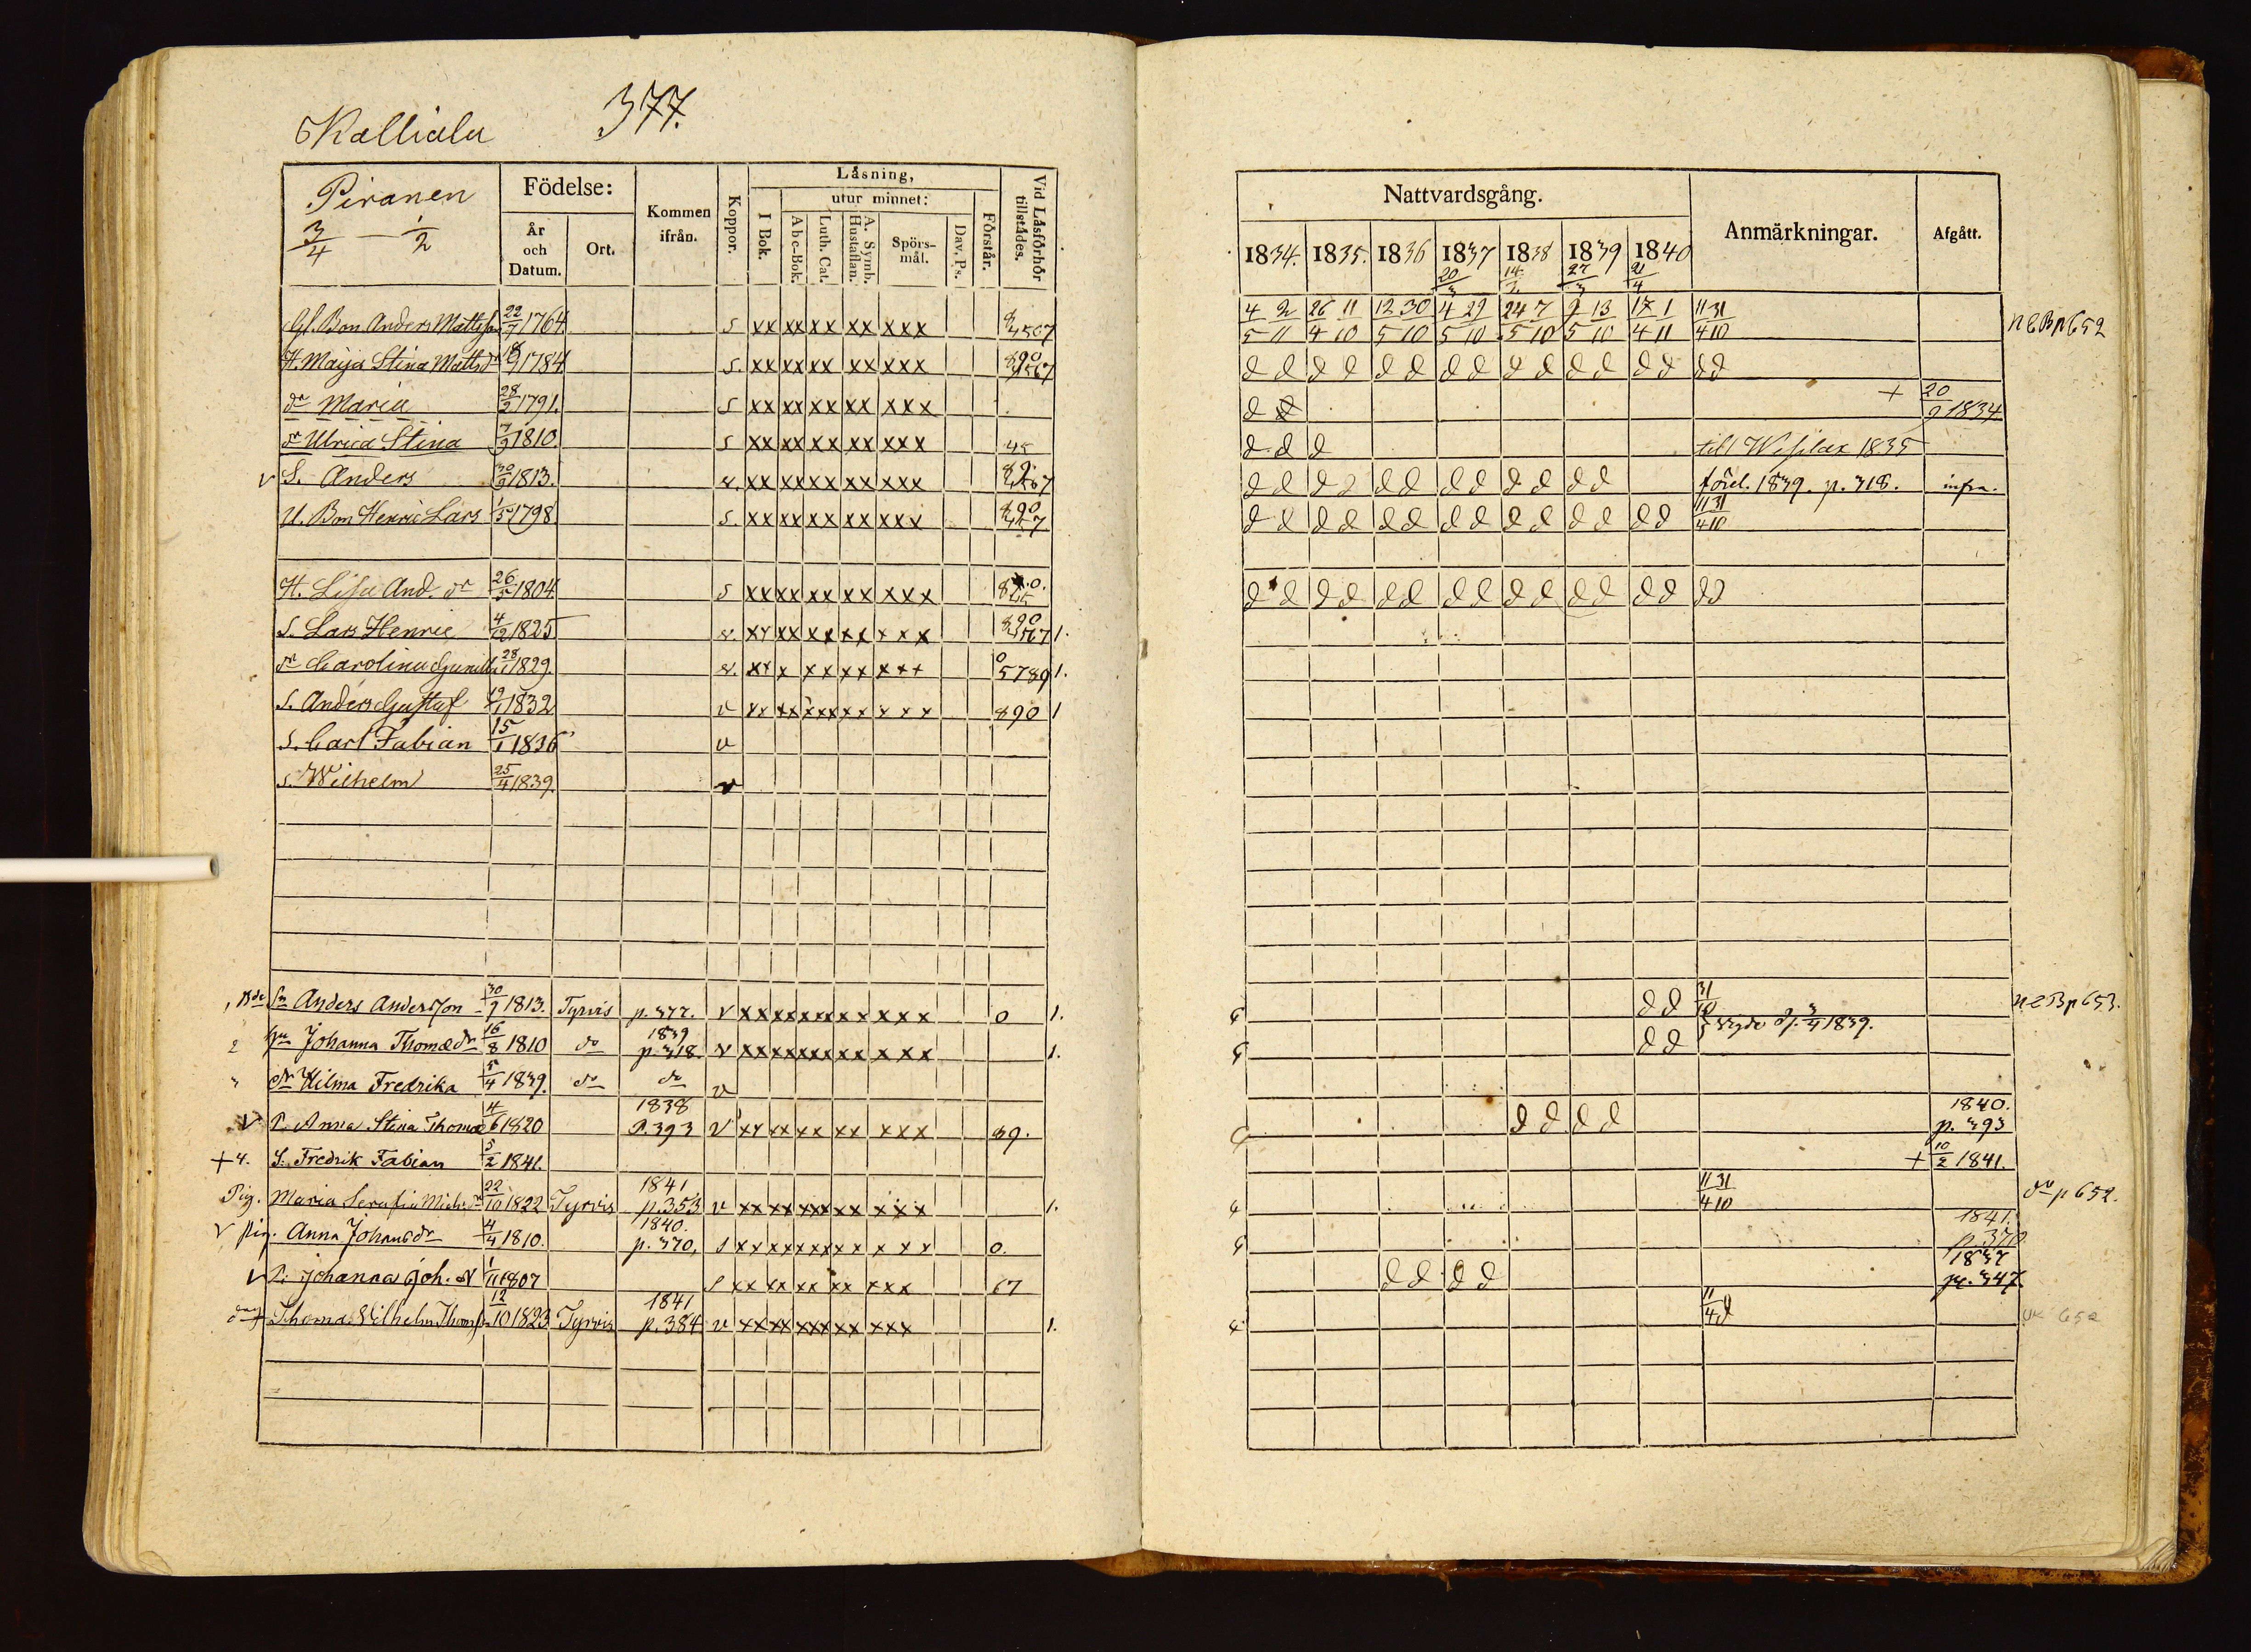 Kalliala 377.
Piranen
3/4 — 1/2
Födelse:
År och Datum.
Ort.
Kommen ifrån.
Koppor.
Läsning,
utur minnet:
I Bok.
Abc-Bok.
Luth. Cat.
A. Symb. Hustaflan.
Spörsmål.
Dav. Ps.
Förstår.
Vid Läsförhör tillstådes.
Nattvardsgång.
1834. 1835. 1836 1837 1838 1839 1840
Anmärkningar.
Afgått.
Gl. Bon Anders Mattsson 22/7 1764 s xx xx xx xx xxx
4 2 26 11 12 30 4 29 24 7 9 13 17 1 11 31
5 11 4 10 5 10 5 10 5 10 5 10 4 11 4 10
H. Maija Stina Mattsdr 1784 s. xx xx xx xx xxx d d d d d d d d d d d d d d d d
dr Maria 28/2 1791. s xx xx xx xx xxx d d + 20/9 1834
dr Ulrica Stina 7/9 1810. s xx xx xx xx xxx 45 d d d till Wesilax 1835
v S. Anders 30/9 1813. v. xx xx xx xx xxx d d d d d d d d d d d d förel. 1839. p. 318. infra.
U. Bon Henric Lars 1/5 1798 s. xx xx xx xx xxx d d d d d d d d d d d d d d 11 31
4 10
H. Lisa And. dr 26/5 1804 s xx xx xx xx xxx d d d d d d d d d d d d d d d d
S. Lars Henric 4/12 1825 v. xx xx xx xx xxx 1.
dr Carolina Gunilla 28/1 1829. v. xx x xx xx xxx 5789 1.
S. Anders Gustaf 19/1 1832 v xx xx xxx xx xxx 890 1
S. Carl Fabian 15/1 1836 v
S. Wilhelm 25/4 1839. v
Sn Anders Andersson 30/9 1813. Tyrvis p. 377. v xx xx xx xx xxx 0 1. d d 31/10
1839
2 Johanna Thomædr 16/8 1810 do p. 318. v xx xx xx xx xxx 1. d d 1839.
dr Hilma Fredrika 5/4 1839. do do v
1838 1840.
v P. Anna Stina Thomæ 4/6 1820 P. 393 v xx xx xx xx xxx 89. d d d d p. 393
+ 4. S. Fredrik Fabian 5/2 1841. + 10/2 1841.
1841 11 31
Pig. Maria Serafia Mich. dr 22/10 1822 Tyrvis p. 353 v xx xx xxx xx xxx 1. 4 10 do p 652.
1840. 1841.
v pig. Anna Johansdr 4/4 1810. p. 370. s xx xx xx xx xxx 0. p. 370
1837
v P. Johanna Joh. dr 1/11 1807 s xx xx xx xx xxx 67 d d d d p. 347.
1841
Thomas Wilhelm Thomss. 12/10 1823 Tyrvis p. 384 v xx xx xxx xx xxx 1. 11/4 d